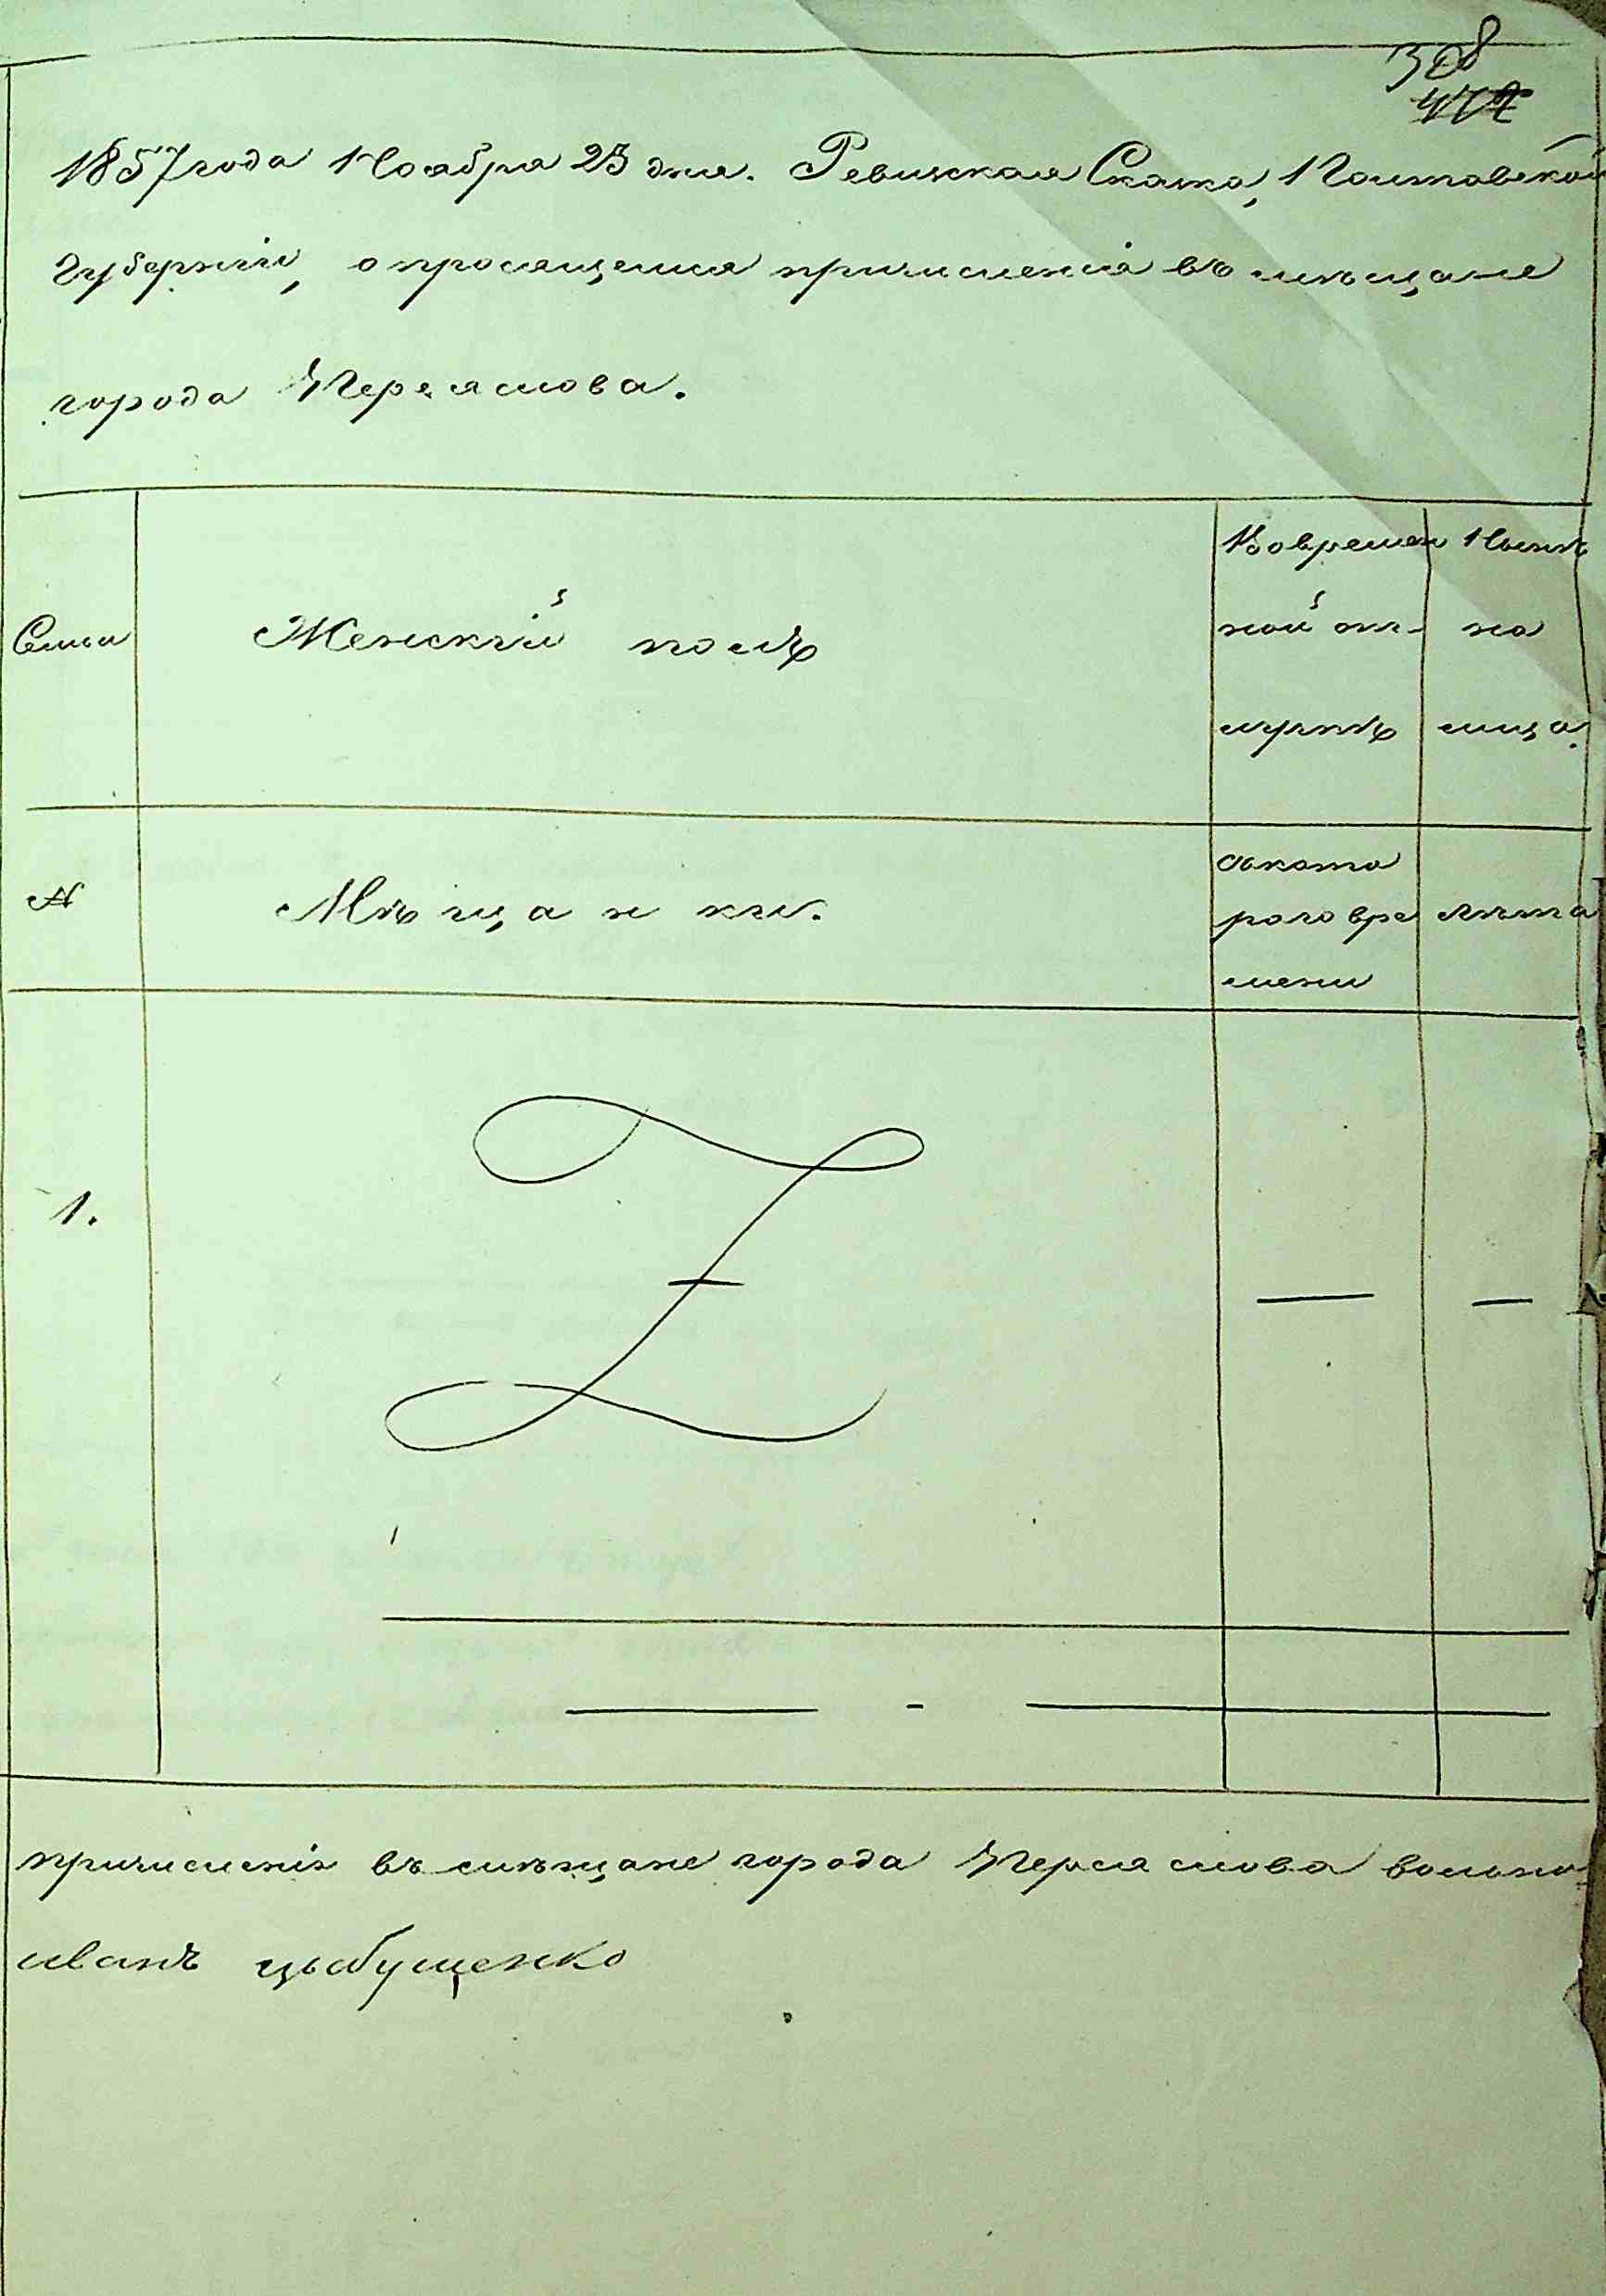 308
477
1857 года Ноября 23 дня. Ревизская Сказка, Полтавской
Губернiи, о просящемся причисленiя въ мѣщане
города Переяслова.
Семьи
Женскiй полъ
Вовремен
ной от-
лучкѣ
Нынѣ
на
лицо.
№
Мѣщанки.
Съкото
раго вре
мени
Лѣта
1.
причисленiя въ мѣщане города Переяслова вольно
иванъ цыбущенко